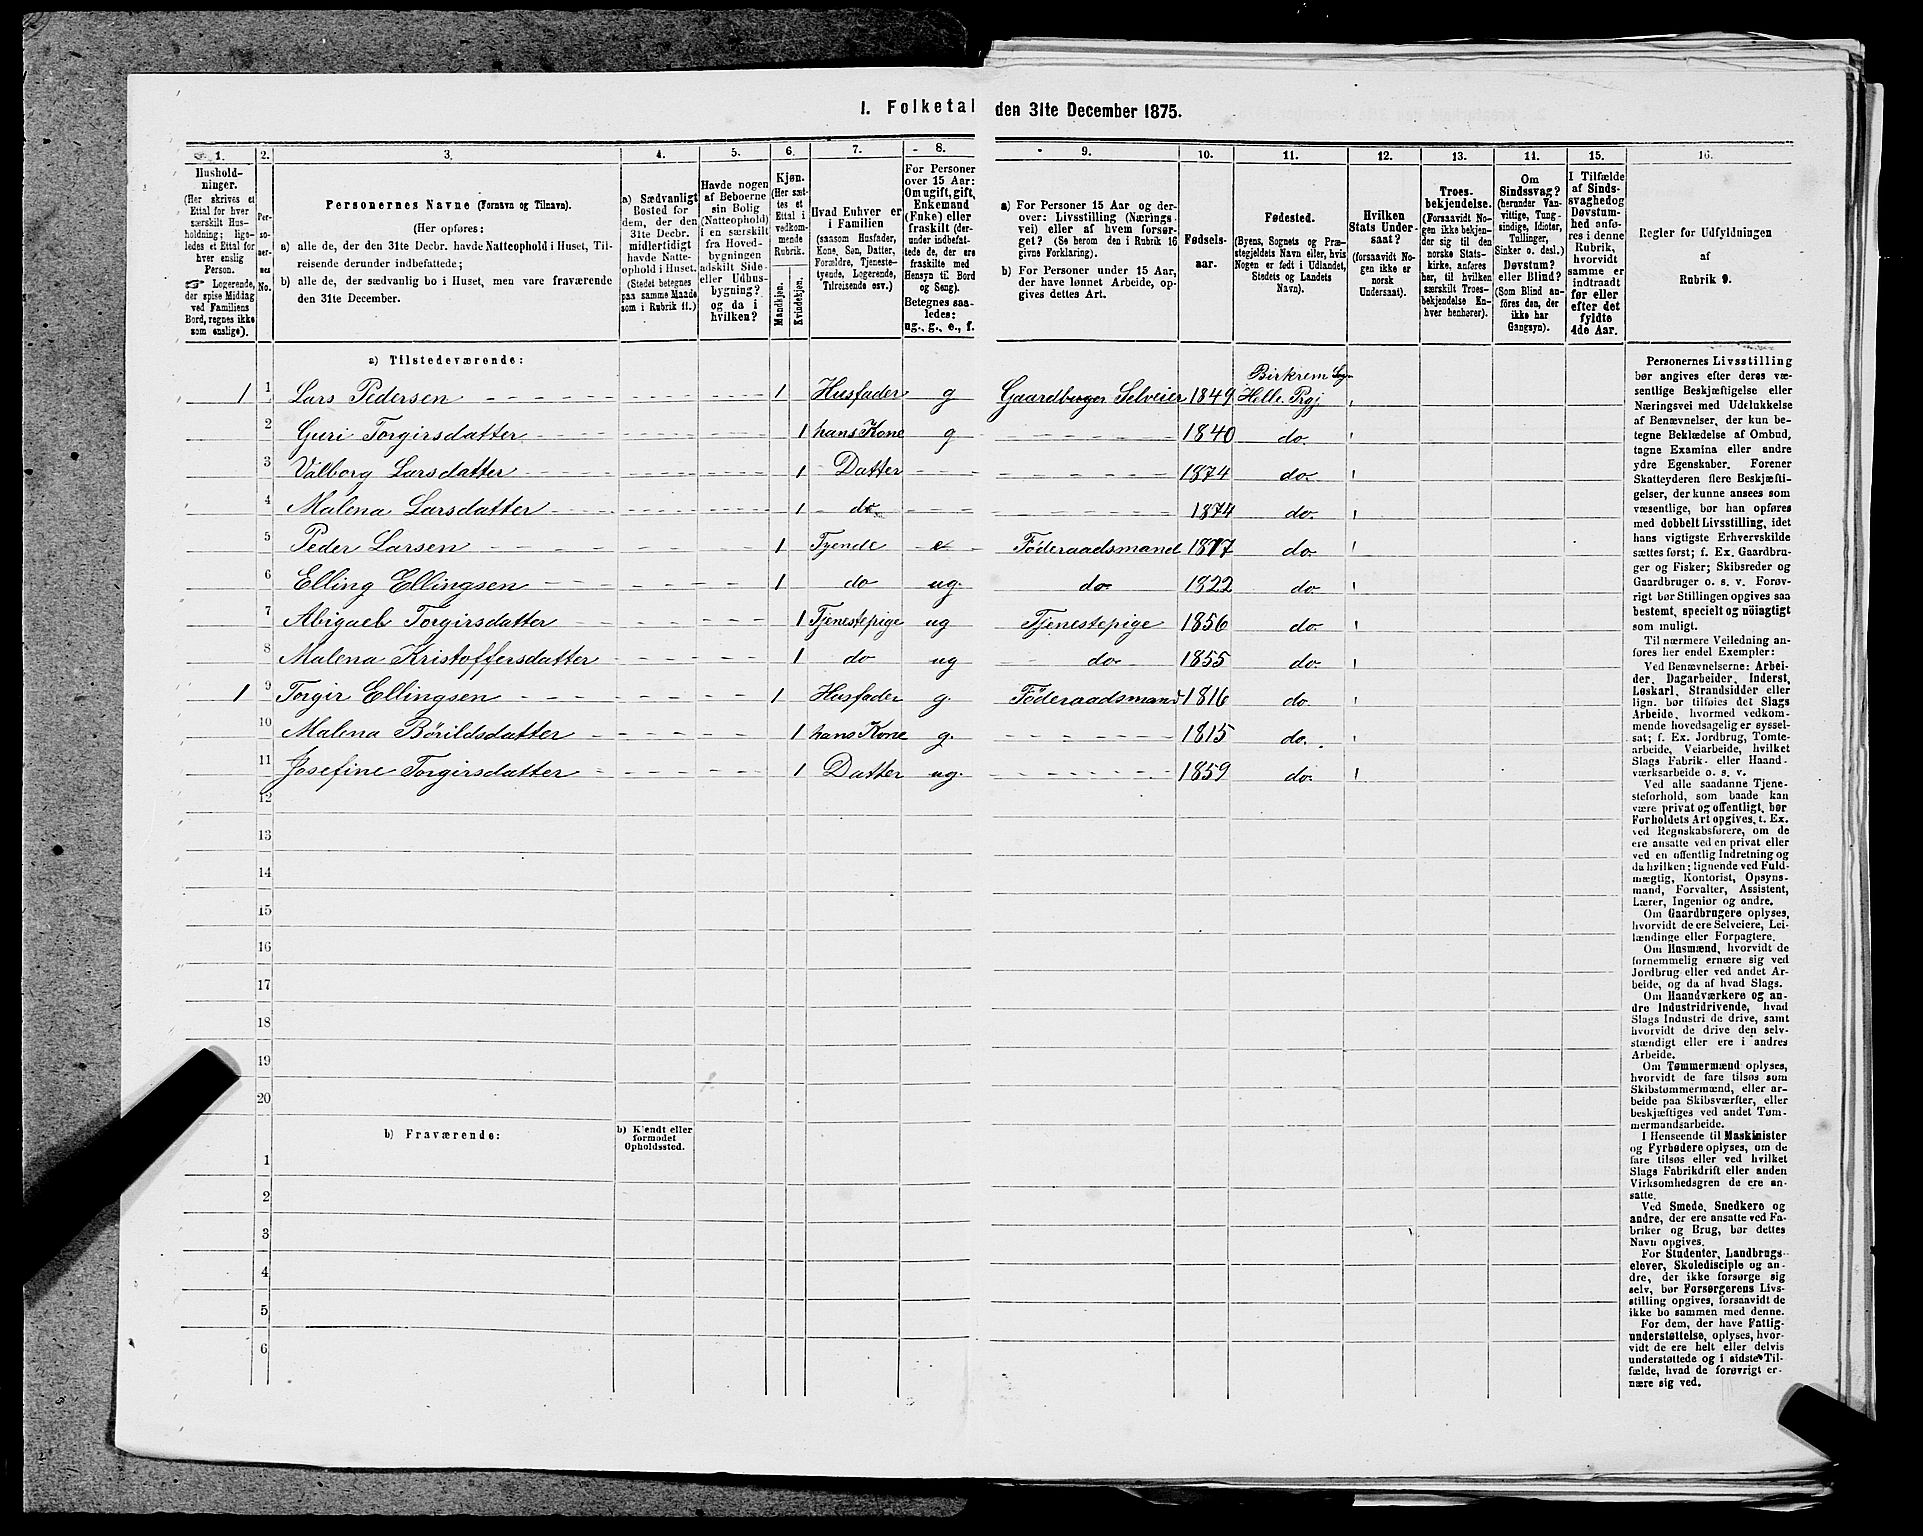 I. Folketal den 31te December 1875.
1. 2. 3. 4. 5. 6. 7. 8. 9. 10. 11. 12. 13. 14. 15. 16.
Hushold-
ninger.
(Her skrives et
Ettal for hver
særskilt Hus-
holdning; lige-
ledes et Ettal for
hver enslig
Person.
☞ Logerende,
der spise Middag
ved Familiens
Bord, regnes ikke
som enslige).
Per-
so-
ner-
nes
No.
Personernes Navne (Fornavn og Tilnavn).
(Her opføres:
a) alle de, der den 31te Decbr. havde Natteophold i Huset, Til-
reisende derunder indbefattede;
b) alle de, der sædvanlig bo i Huset, men vare fraværende
den 31te December.
a) Sædvanligt
Bosted for
dem, der den
31te Decbr.
midlertidigt
havde Natte-
ophold i Huset.
(Stedet betegnes
paa samme Maade
som i Rubrik 11.)
Havde nogen
af Beboerne
sin Bolig
(Natteophold)
i en særskilt
fra Hoved-
bygningen
adskilt Side-
eller Udhus-
bygning?
og da i
hvilken?
Kjøn.
(Her sæt-
tes et
Ettal i
vedkom-
mende
Rubrik.
Mandkjøn.
Kvindekjøn.
Hvad Enhver er
i Familien
(saasom Husfader,
Kone, Søn, Datter,
Forældre, Tjeneste-
tyende, Logerende,
Tilreisende osv.)
For Personer
over 15 Aar:
Om ugift, gift,
Enkemand
(Enke) eller
fraskilt (der-
under indbefat-
tede de, der ere
fraskilte med
Hensyn til Bord
og Seng).
Betegnes saa-
ledes:
ug., g., e., f.
a) For Personer 15 Aar og der-
over: Livsstilling (Nærings-
vei) eller af hvem forsør-
get? (Se herom den i Rubrik 16
givne Forklaring).
b) For Personer under 15 Aar,
der have lønnet Arbeide, op-
gives dettes Art.
Fødsels-
aar.
Fødested.
(Byens, Sognets og Præ-
stegjeldets Navn eller, hvis
Nogen er født i Udlandet,
Stedets og Landets
Navn).
Hvilken
Stats Under-
saat?
(forsaavidt No-
gen ikke er
norsk
Undersaat).
Troes-
bekjendelse.
(Forsaavidt No-
gen ikke bekjen-
der sig til den
norske Stats-
kirke, anføres
her, til hvilken
særskilt Troes-
bekjendelse En-
hver henhører).
Om
Sindssvag?
(herunder Van-
vittige, Tung-
sindige, Idioter,
Tullinger,
Sinker o. desl.)
Døvstum?
eller Blind?
(Som Blind an-
føres den, der
ikke har
Gangsyn).
I Tilfælde
af Sinds-
svaghed og
Døvstum-
hed anfø-
res i denne
Rubrik,
hvorvidt
samme er
indtraadt
før eller
efter det
fyldte
4de Aar.
Regler for Udfyldningen
af
Rubrik 9.
a) Tilstedeværende:
1 1 Lars Pedersen 1 Husfader g Gaardbruger Selveier 1849 Birkrem Sogn Helle. Pgj
2 Guri Torgirsdatter 1 hans Kone g 1840 do.
3 Valborg Larsdatter 1 Datter 1874 do.
4 Malena Larsdatter 1 do. 1874 do.
5 Peder Larsen 1 Tyende e Föderaadsmand 1817 do
6 Elling Ellingsen 1 do ug. do 1822 do.
7 Abigael Torgirsdatter 1 Tjenestepige ug Tjenestepige 1856 do.
8 Malena Kristoffersdatter 1 do ug do. 1855 do.
1 9 Torgir Ellingsen 1 Husfader g. Föderaadsmand 1816 do
10 Malena Börildsdatter 1 hans Kone g. 1815 do.
11 Josefine Torgirsdatter 1 Datter ug. 1859 do.
12
13
14
15
16
17
18
19
20
b) Fraværende:
b) Kjendt eller
formodet
Opholdssted.
1
2
3
4
5
6
Personernes Livsstilling
bør angives efter deres væ-
sentlige Beskjæftigelse eller
Næringsvei med Udelukkelse
af Benævnelser, der kun be-
tegne Beklædelse af Ombud,
tagne Examina eller andre
ydre Egenskaber. Forener
Skatteyderen flere Beskjæfti-
gelser, der kunne ansees som
væsentlige, bør han opføres
med dobbelt Livsstilling, idet
hans vigtigste Erhvervskilde
sættes først; f. Ex. Gaardbru-
ger og Fisker; Skibsreder og
Gaardbruger o. s. v. Forøv-
rigt bør Stillingen opgives saa
bestemt, specielt og nöiagtigt
som muligt.
Til nærmere Veiledning an-
føres her endel Exempler:
Ved Benævnelserne: Arbei-
der, Dagarbeider, Inderst,
Løskarl, Strandsidder eller
lign. bør tilføies det Slags
Arbeide, hvormed vedkom-
mende hovedsagelig er syssel-
sat; f. Ex. Jordbrug, Tomte-
arbeide, Veiarbeide, hvilket
Slags Fabrik- eller Haand-
værksarbeide o. s. v.
Ved alle saadanne Tjene-
steforhold, som baade kan
være privat og offentligt, bør
Forholdets Art opgives, t. Ex.
ved Regnskabsførere, om de
ere ansatte ved en privat eller
ved en offentlig Indretning og
da hvilken; lignende ved Fuld-
mægtig, Kontorist, Opsyns-
mand, Forvalter, Assistent,
Lærer, Ingeniør og andre.
Om Gaardbrugere oplyses,
hvorvidt de ere Selveiere, Lei-
lændinge eller Forpagtere.
Om Husmænd, hvorvidt de
fornemmelig ernære sig ved
Jordbrug eller ved andet Ar-
beide, og da af hvad Slags.
Om Haandværkere og an-
dre Industridrivende, hvad
Slags Industri de drive, samt
hvorvidt de drive den selv-
stændigt eller ere i andres
Arbeide.
Om Tømmermænd oplyses,
hvorvidt de fare tilsøs som
Skibstømmermænd, eller ar-
beide paa Skibsværfter, eller
beskjæftiges ved andet Tøm-
mermandsarbeide.
I Henseende til Maskinister
og Fyrbødere oplyses, om de
fare tilsøs eller ved hvilket
Slags Fabrikdrift eller anden
Virksomhedsgren de ere an-
satte.
Ved Smede, Snedkere og
andre, der ere ansatte ved Fa-
briker og Brug, bør dettes
Navn opgives.
For Studenter, Landbrugs-
elever, Skoledisciple og an-
dre, der ikke forsørge sig
selv, bør Forsørgerens Livs-
stilling opgives, forsaavidt de
ikke bo sammen med denne.
For dem, der have Fattig-
understøttelse, oplyses, hvor-
vidt de ere helt eller delvis
understøttede og i sidste Til-
fælde, hvad de forøvrigt er-
nære sig ved.